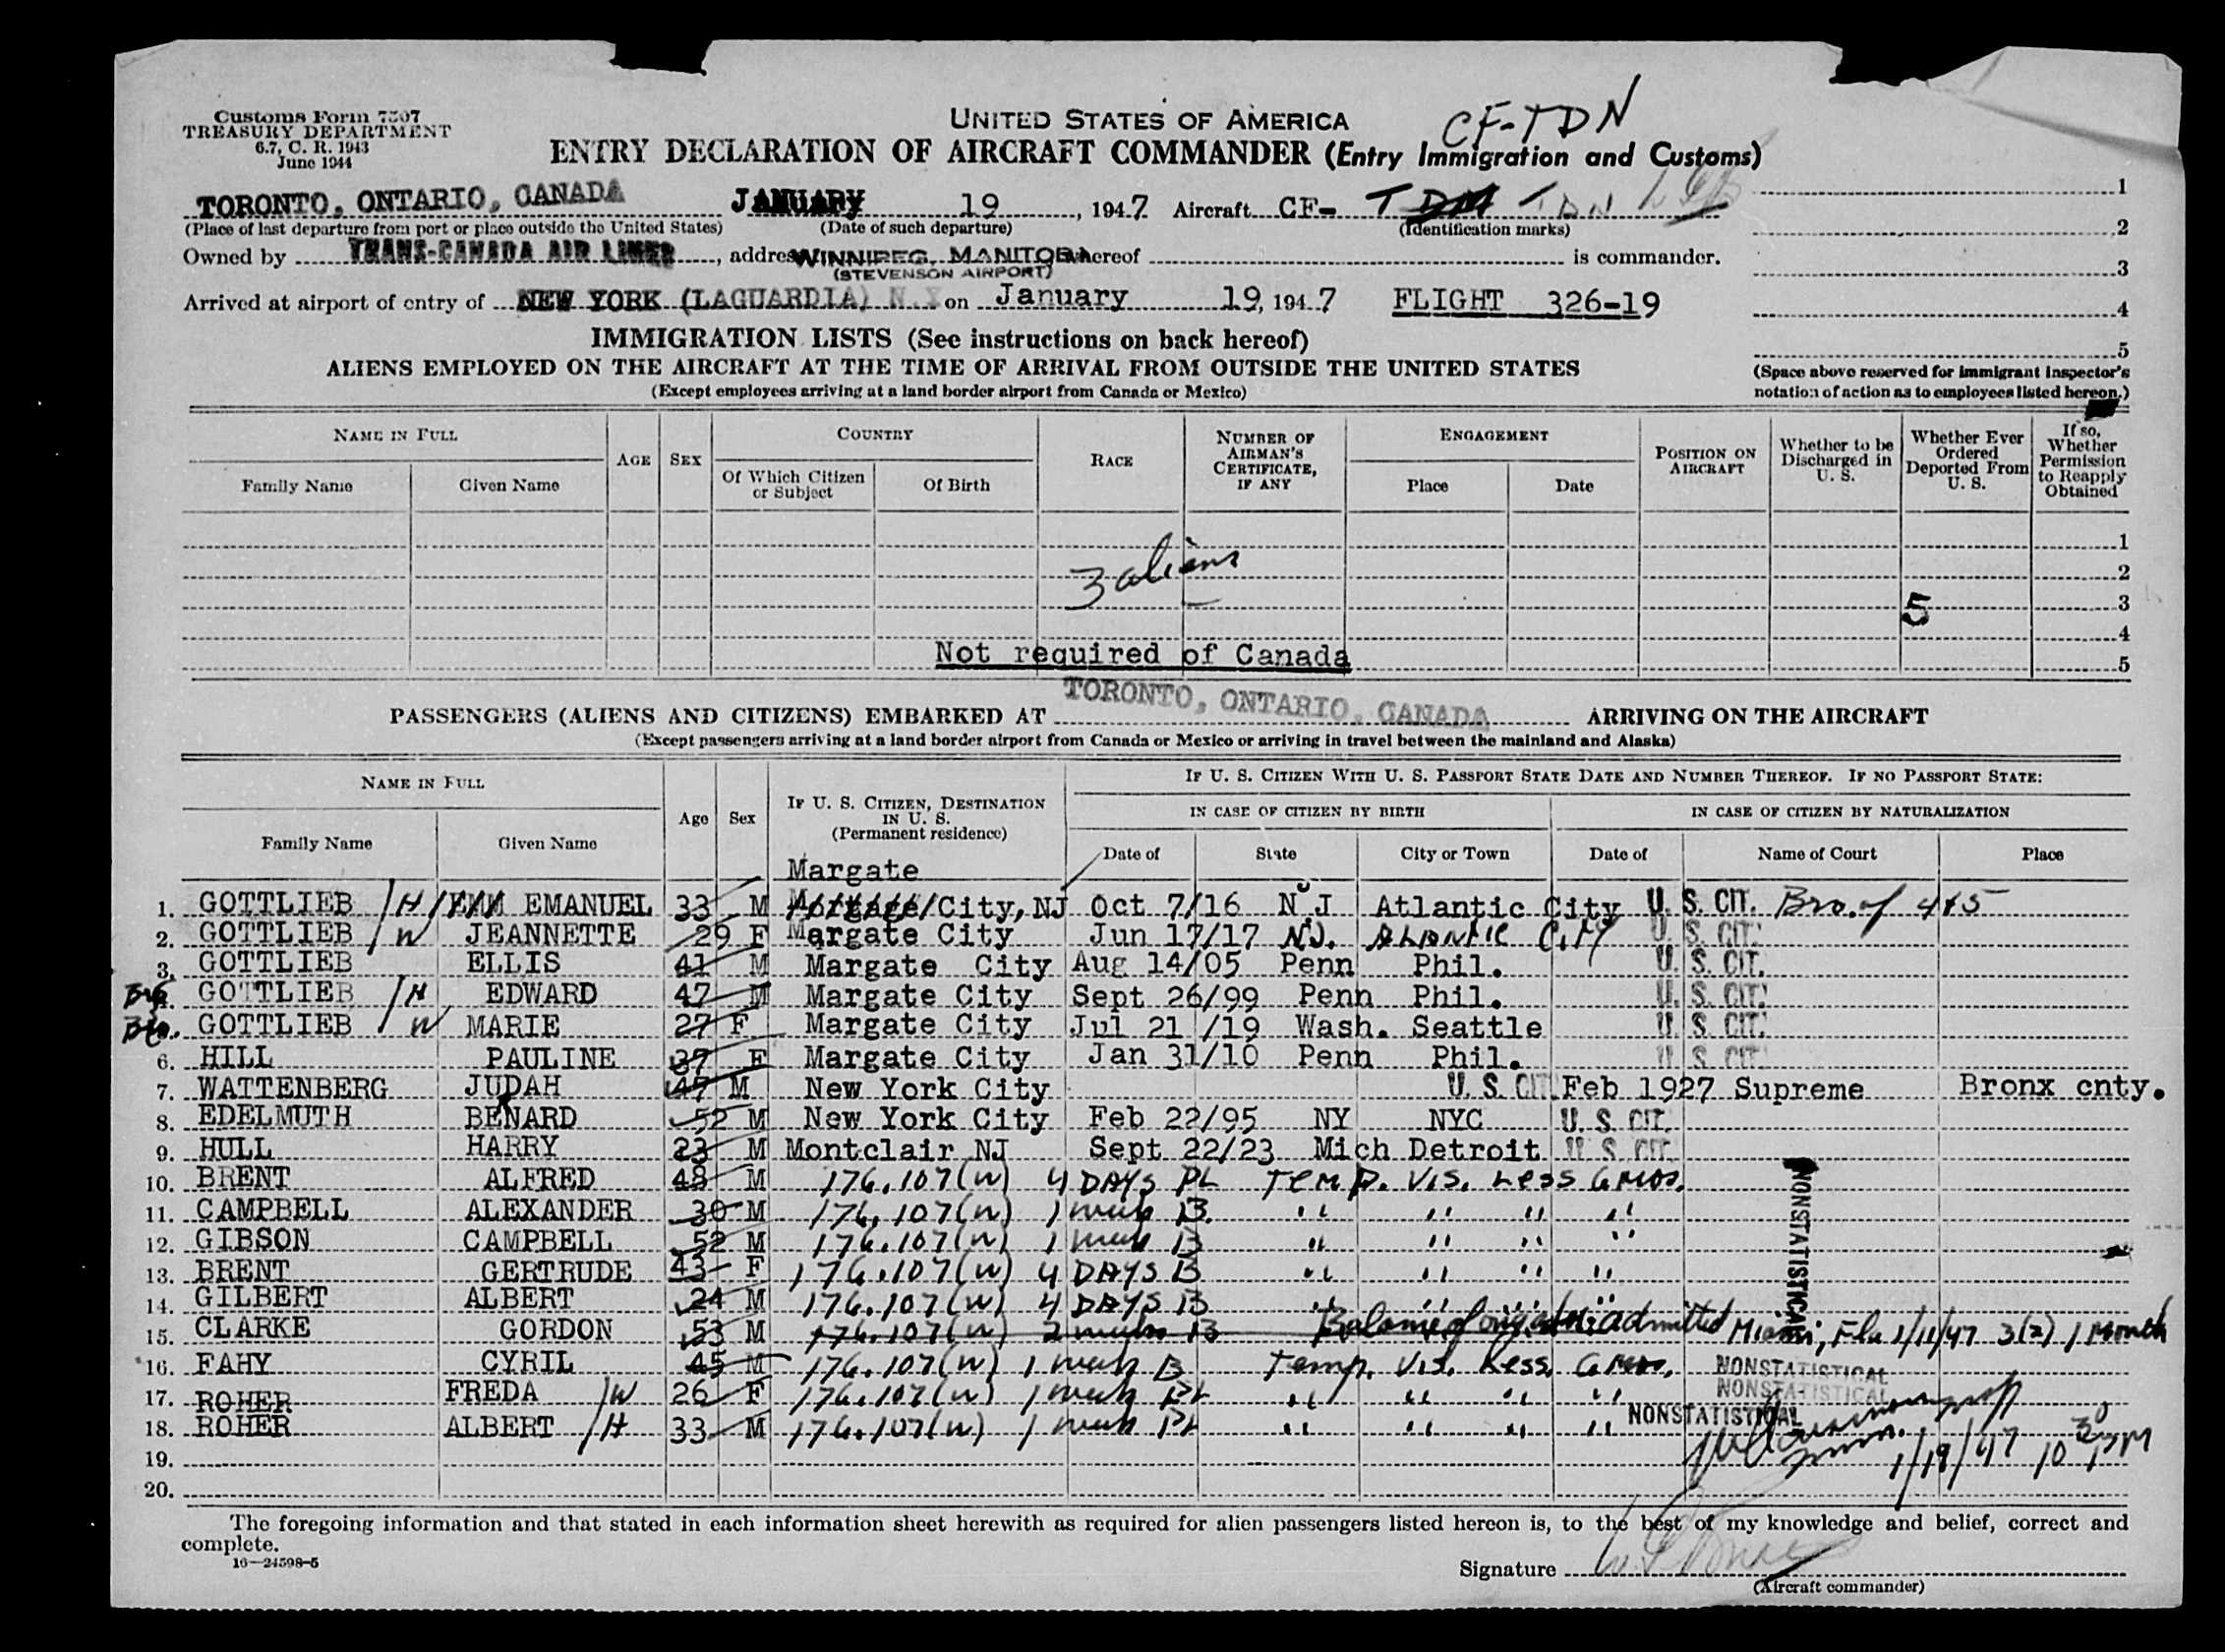 Customs Form 7507
TREASURY DEPARTMENT
6.7, C. R. 1943
June 1944
UNITED STATES OF AMERICA
CF-TDN
ENTRY DECLARATION OF AIRCRAFT COMMANDER (Entry Immigration and Customs)
TORONTO, ONTARIO, CANADA JANUARY 19, 1947 Aircraft CF- TDM TDN
1
(Place of last departure from port or place outside the United States) (Date of such departure) (Identification marks)
2
Owned by TRANS-CANADA AIR LINES, address WINNIPEG, MANITOBA hereof is commander.
(STEVENSON AIRPORT)
3
Arrived at airport of entry of NEW YORK (LAGUARDIA) N.Y. on January 19, 1947 FLIGHT 326-19
4
IMMIGRATION LISTS (See instructions on back hereof)
5
ALIENS EMPLOYED ON THE AIRCRAFT AT THE TIME OF ARRIVAL FROM OUTSIDE THE UNITED STATES
(Except employees arriving at a land border airport from Canada or Mexico)
(Space above reserved for immigrant inspector's
notation of action as to employees listed hereon.)
NAME IN FULL
Family Name Given Name
AGE SEX
COUNTRY
Of Which Citizen or Subject Of Birth
RACE
NUMBER OF AIRMAN'S CERTIFICATE, IF ANY
ENGAGEMENT
Place Date
POSITION ON AIRCRAFT
Whether to be Discharged in U. S.
Whether Ever Ordered Deported From U. S.
If so, Whether Permission to Reapply Obtained
1
3 aliens
2
5 3
4
Not required of Canada 5
PASSENGERS (ALIENS AND CITIZENS) EMBARKED AT TORONTO, ONTARIO, CANADA ARRIVING ON THE AIRCRAFT
(Except passengers arriving at a land border airport from Canada or Mexico or arriving in travel between the mainland and Alaska)
NAME IN FULL
Family Name Given Name
Age Sex
IF U. S. CITIZEN, DESTINATION IN U. S.
(Permanent residence)
IF U. S. CITIZEN WITH U. S. PASSPORT STATE DATE AND NUMBER THEREOF. IF NO PASSPORT STATE:
IN CASE OF CITIZEN BY BIRTH IN CASE OF CITIZEN BY NATURALIZATION
Date of State City or Town Date of Name of Court Place
Margate
1. GOTTLIEB /H/ EMANUEL 33 M City, NJ Oct 7/16 N J Atlantic City U. S. CIT. Bro. of 4&5
2. GOTTLIEB / W JEANNETTE 29 F Margate City Jun 17/17 N.J. Atlantic City U. S. CIT.
3. GOTTLIEB ELLIS 41 M Margate City Aug 14/05 Penn Phil. U. S. CIT.
Bro. GOTTLIEB /H EDWARD 47 M Margate City Sept 26/99 Penn Phil. U. S. CIT.
Bro. GOTTLIEB / W MARIE 27 F Margate City Jul 21 /19 Wash. Seattle U. S. CIT.
6. HILL PAULINE 37 F Margate City Jan 31/10 Penn Phil. U. S. CIT.
7. WATTENBERG JUDAH 47 M New York City U. S. CIT. Feb 1927 Supreme Bronx cnty.
8. EDELMUTH BENARD 52 M New York City Feb 22/95 NY NYC U. S. CIT.
9. HULL HARRY 23 M Montclair NJ Sept 22/23 Mich Detroit U. S. CIT.
10. BRENT ALFRED 48 M 176.107(W) 4 DAYS PL Temp. Vis. Less 6 mos.
11. CAMPBELL ALEXANDER 30 M 176.107(W) 1 week B " " " "
12. GIBSON CAMPBELL 52 M 176.107(W) 1 week B " " " "
13. BRENT GERTRUDE 43 F 176.107(W) 4 DAYS B " " " "
14. GILBERT ALBERT 24 M 176.107(W) 4 DAYS B " " " "
NONSTATISTICAL
15. CLARKE GORDON 53 M 176.107(W) 2 weeks B Balance of original admitted Miami, Fla 1/11/47 3(2) 1 Month
16. FAHY CYRIL 45 M 176.107(W) 1 week B Temp. Vis. Less 6 mos. NONSTATISTICAL
17. ROHER FREDA /W 26 F 176.107(W) 1 week PL " " " " NONSTATISTICAL
18. ROHER ALBERT /H 33 M 176.107(W) 1 week PL " " " " NONSTATISTICAL
19. 1/19/47 10 30 PM
20.
The foregoing information and that stated in each information sheet herewith as required for alien passengers listed hereon is, to the best of my knowledge and belief, correct and
complete.
16—24598-5
Signature
(Aircraft commander)